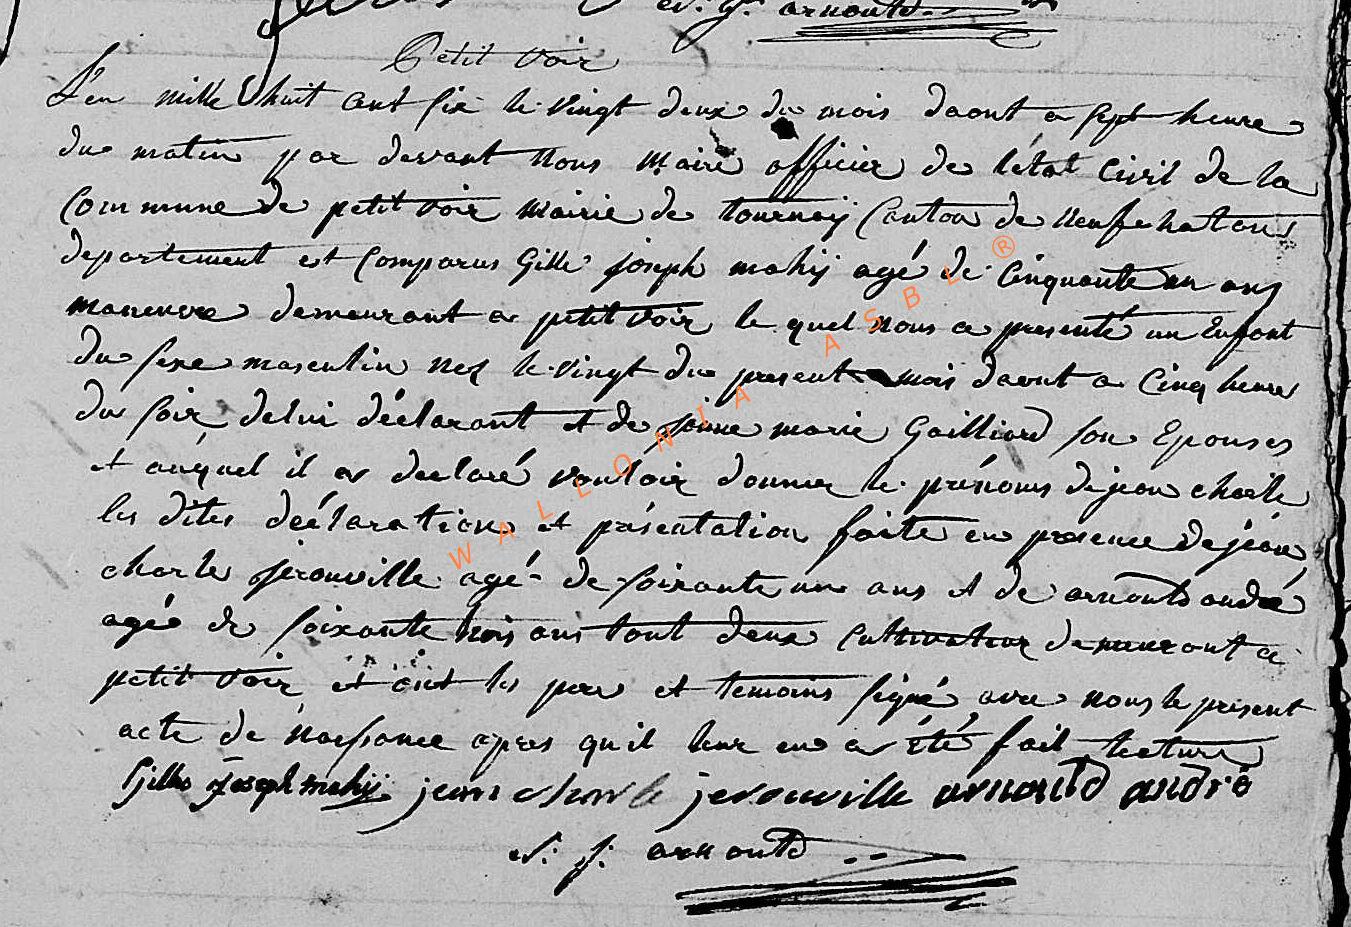 arnould
Petit voir
L'en mille huit cent six le vingt deux du mois daout a sept heure
du matin par devant nous maire officier de létat Civil de la
Commune de petit voir mairie de tournay Canton de neufchateau
departement est Comparus Gille joseph mahij agé de Cinquante un ans
maneuvre demeurant a petit voir le quel nous a presenté un Enfant
du sexe masculin nez le vingt du present mois daout a Cinq heures
du soir delui déclarant et de jenne marie Gailliard son Epouses
et auquel il a declaré vouloir donner le prénoms dejean charle
les dites déclaration et présentation faite en presence dejean
charle jerouville agé de soixante un ans et de arnould andré
agée de soixante trois ans tout deux Cultivateur demeurant a
petit voir et ont les pere et temoins signé avec nous le present
acte de naissance apres quil leur en a été fait lecture
Gille Joseph mahij jean charle jerouville arnould andré
arnould
WALLONIA ASBL ®